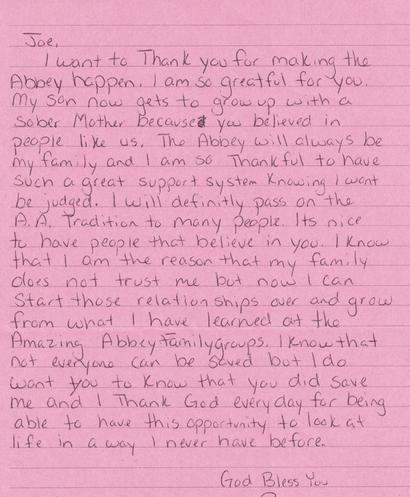 Joe,
I want to Thank you for making the
Abbey happen. I am so greatful for you.
My son now gets to grow up with a
Sober Mother because you believed in
people like us. The Abbey will always be
my family and I am so Thankful to have
such a great support system knowing I wont
be judged. I will definitly pass on the
A.A. Tradition to many people. Its nice
to have people that believe in you. I know
that I am the reason that my family
does not trust me but now I can
Start those relationships over and grow
from what I have learned at the
Amazing Abbey Familygroups. I know that
not everyone can be saved but I do
want you to know that you did save
me and I Thank God everyday for being
able to have this opportunity to look at
life in a way I never have before.
God Bless You